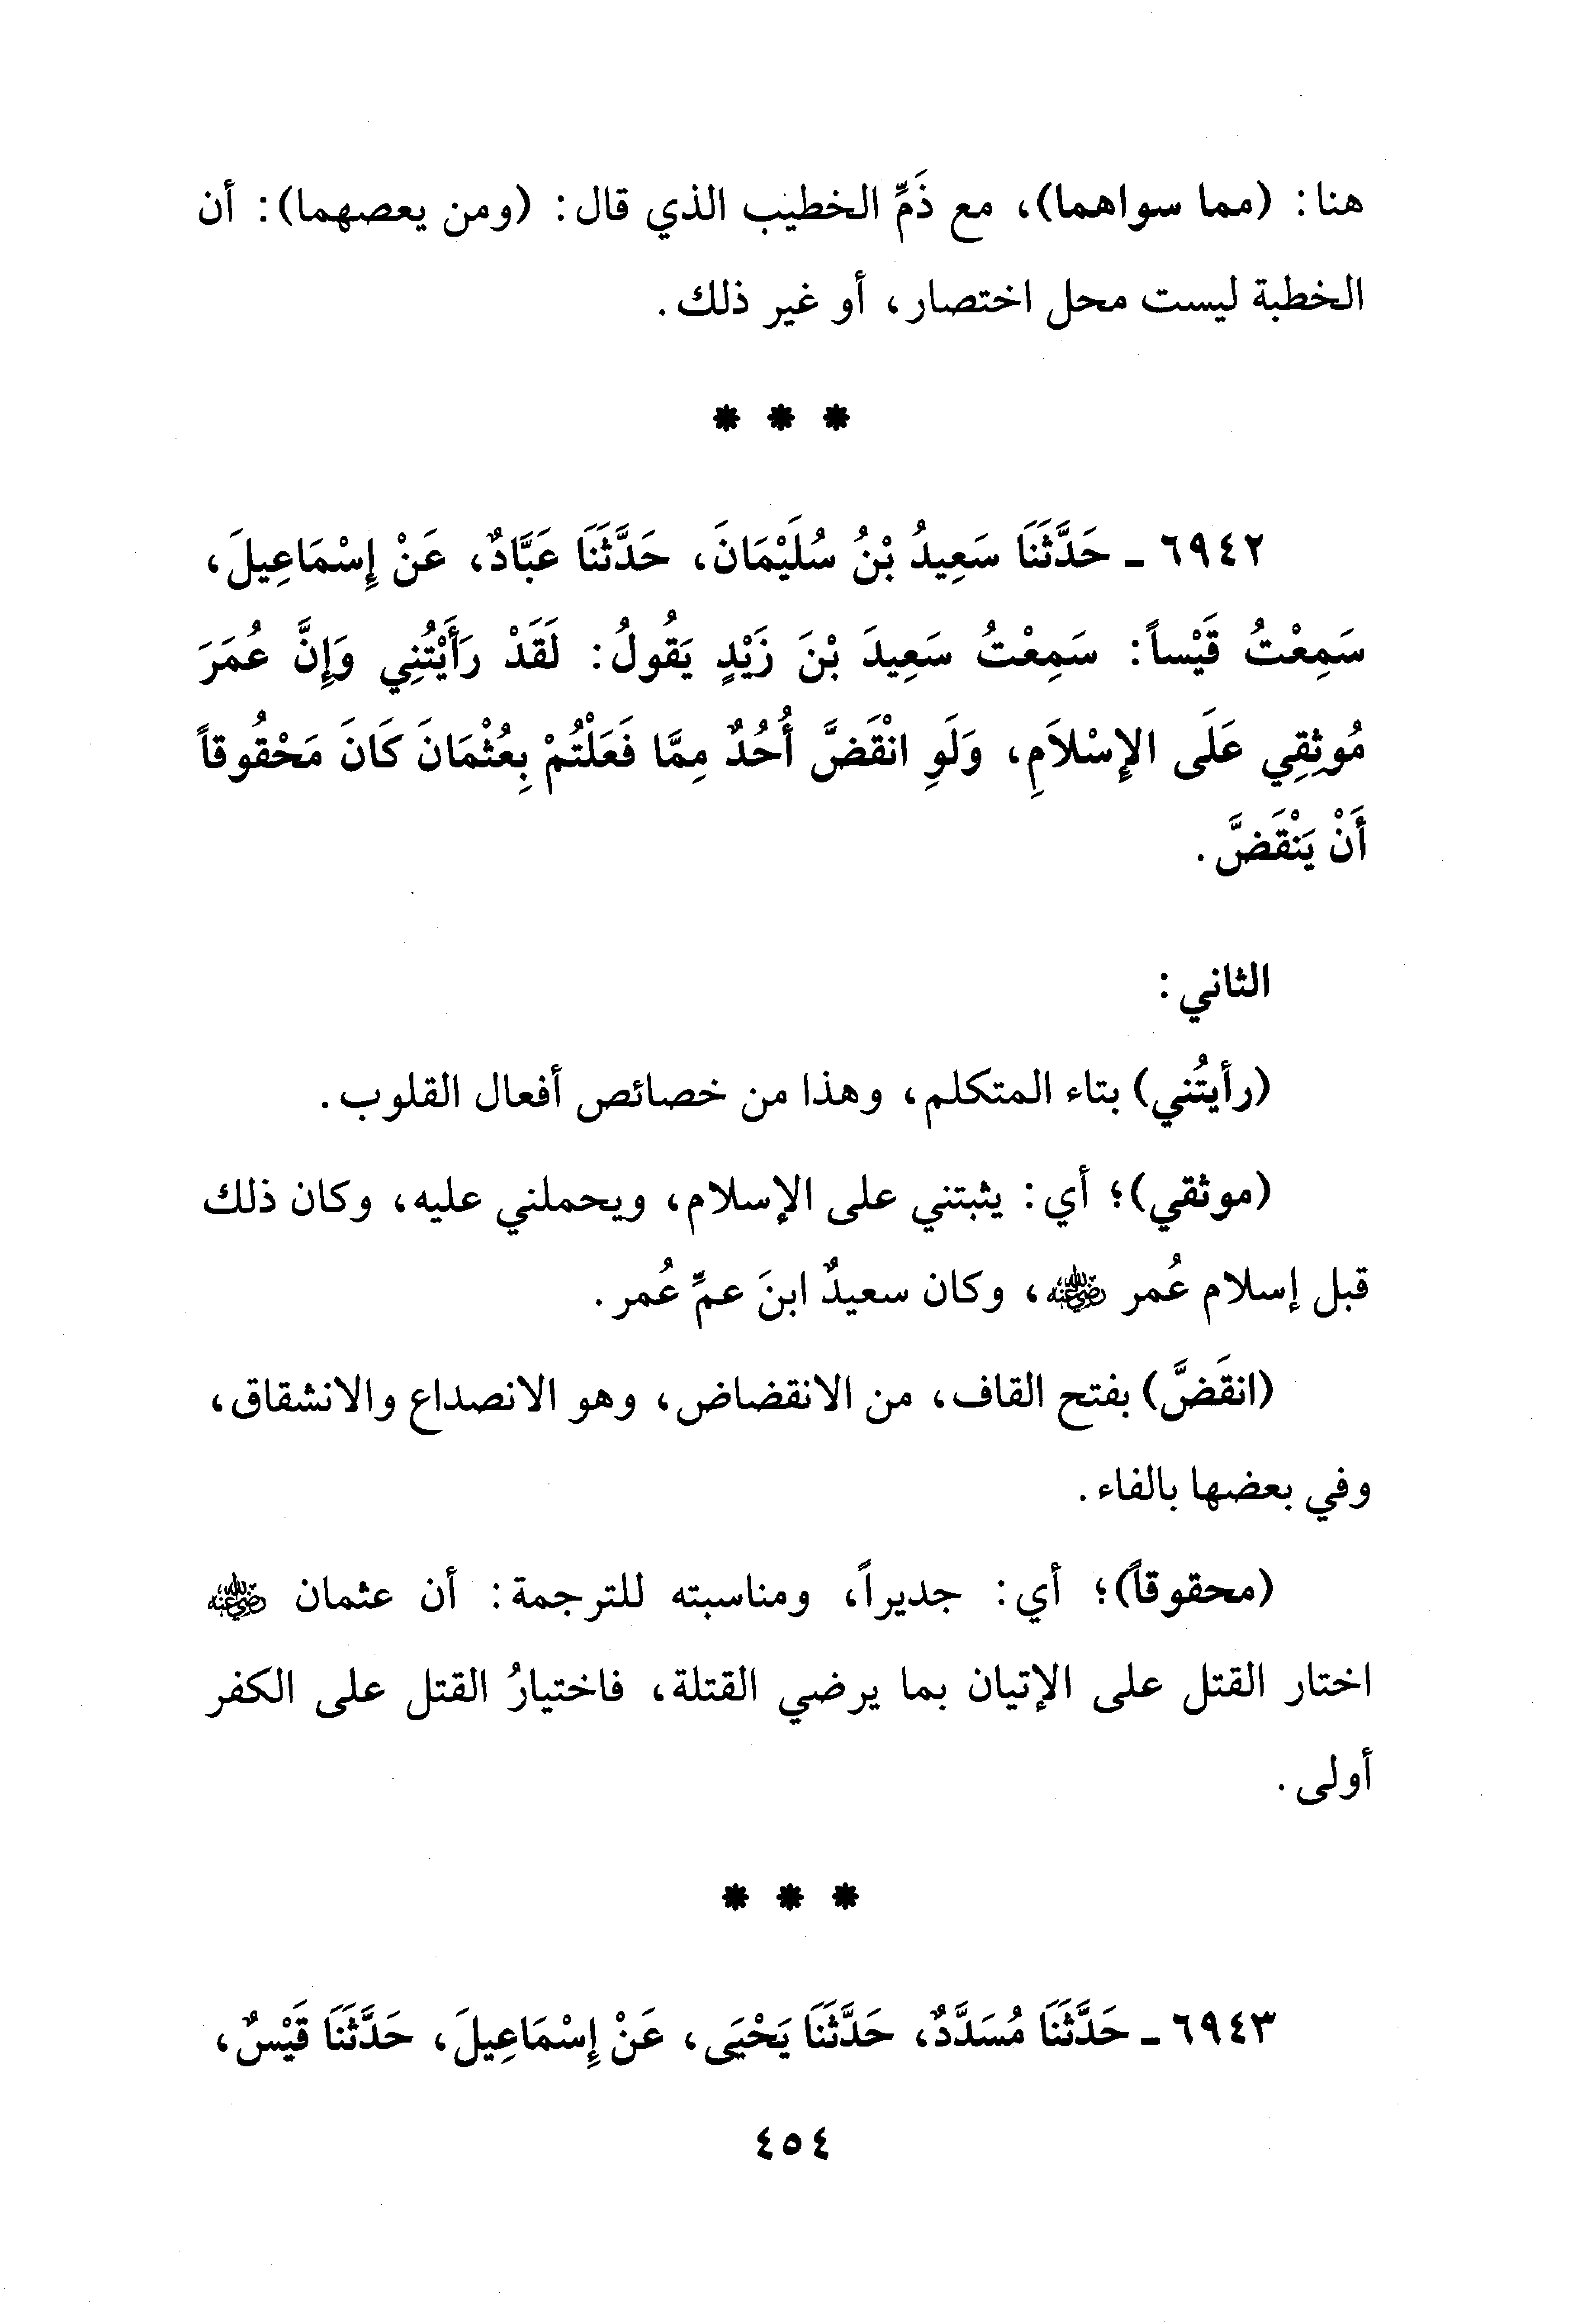 هنا: (مما سواهما)، مع ذَمِّ الخطيب الذي قال: (ومن يعصهما): أن
الخطبة ليست محل اختصار، أو غير ذلك.
* * *
٦٩٤٢ ـ حَدَّثَنَا سَعِيدُ بْنُ سُلَيْمَانَ، حَدَّثَنَا عَبَّادٌ، عَنْ إِسْمَاعِيلَ،
سَمِعْتُ قَيْساً: سَمِعْتُ سَعِيدَ بْنَ زَيْدٍ يَقُولُ: لَقَدْ رَأَيْتُنِي وَإِنَّ عُمَرَ
مُوثِقِي عَلَى الإِسْلاَمِ، وَلَوِ انْقَضَّ أُحُدٌ مِمَّا فَعَلْتُمْ بِعُثْمَانَ كَانَ مَحْقُوقاً
أَنْ يَنْقَضَّ.
الثاني:
(رأيتُني) بتاء المتكلم، وهذا من خصائص أفعال القلوب.
(موثقي)؛ أي: يثبتني على الإسلام، ويحملني عليه، وكان ذلك
قبل إسلام عُمر رضي الله عنه، وكان سعيدٌ ابنَ عمِّ عُمر.
(انقَضَّ) بفتح القاف، من الانقضاض، وهو الانصداع والانشقاق،
وفي بعضها بالفاء.
(محقوقاً)؛ أي: جديراً، ومناسبته للترجمة: أن عثمان رضي الله عنه
اختار القتل على الإتيان بما يرضي القتلة، فاختيارُ القتل على الكفر
أولى.
* * *
٦٩٤٣ ـ حَدَّثَنَا مُسَدَّدٌ، حَدَّثَنَا يَحْيَى، عَنْ إِسْمَاعِيلَ، حَدَّثَنَا قَيْسٌ،
٤٥٤